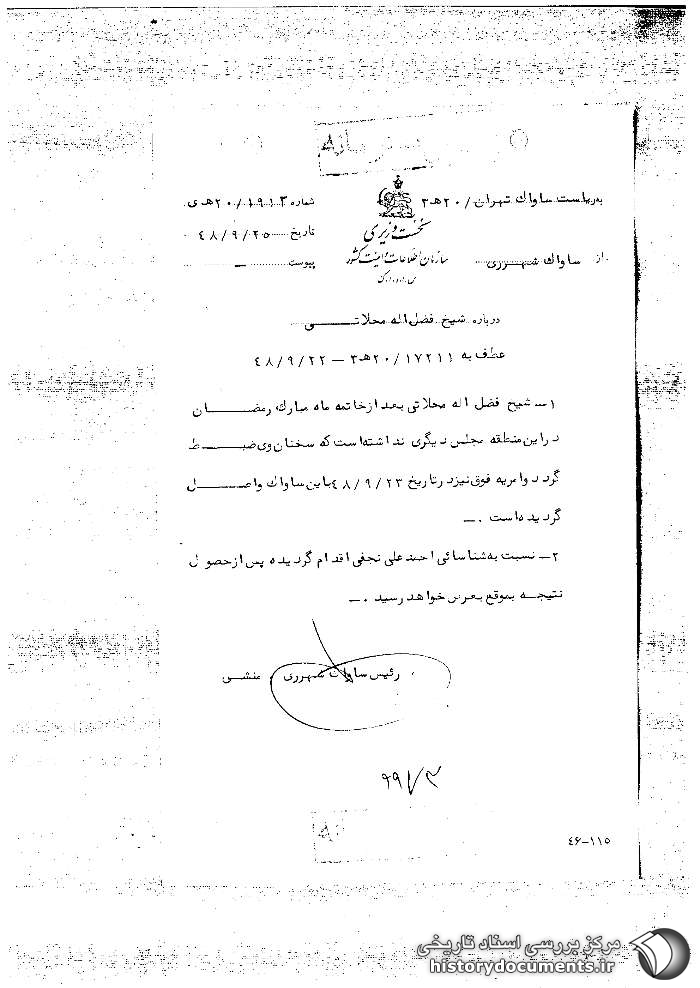 به ریاست ساواک تهران / ۲۰ هـ ۳
شماره ۲۰/۱۹۱۳ هـ ی
نخست وزیری
تاریخ ۴۸/۹/۲۵
از ساواک شهرری
سازمان اطلاعات و امنیت کشور
پیوست —
س.ا.و.ا.ک
درباره شیخ فضل اله محلاتی
عطف به ۲۰/۱۷۲۱۱ هـ ۳ – ۴۸/۹/۲۲
۱– شیخ فضل اله محلاتی بعد از خاتمه ماه مبارک رمضان
در این منطقه مجلس دیگری نداشته است که سخنان وی ضبط
گردد و امریه فوق نیز در تاریخ ۴۸/۹/۲۳ باین ساواک واصل
گردیده است .–
۲– نسبت به شناسائی احمد علی نجفی اقدام گردیده پس از حصول
نتیجه بموقع بعرض خواهد رسید .–
رئیس ساواک شهرری . منشی
۴۶–۱۱۵
مرکز بررسی اسناد تاریخی
historydocuments.ir